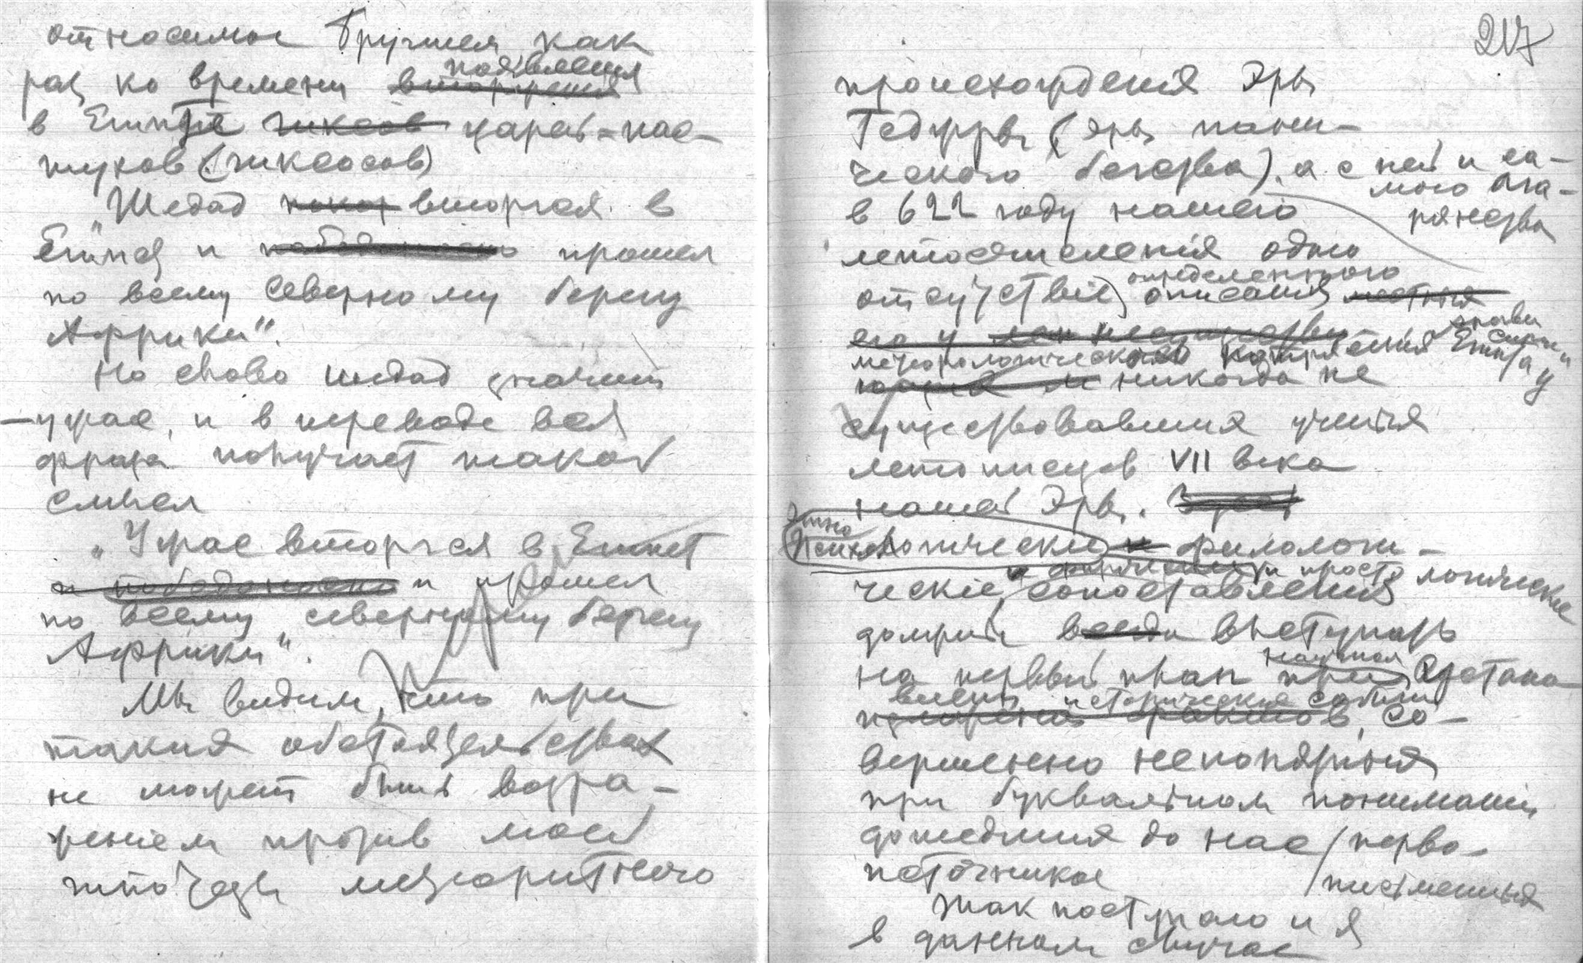 относимое Бругшем как
раз ко времени появления
в Египте царей-пас-
тухов (гиксосов)
"Шедад вторгся в
Египет и прошел
по всему северному берегу
Африки".
Но слово шедад значит
ужас, и в переводе вся
фраза получает такой
смысл
"Ужас вторгся в Египет
и прошел
по всему северному берегу
Африки".
Мы видим, что при
таких обстоятельствах
не может быть возра-
жением против моей
гипотезы метеоритного
217
происхождения Эры
Геджры (эры пани-
ческого бегства), а с ней и са-
мого ага-
рянства
в 622 году нашего
летосчисления одно
отсутствие определенного описания
метеорологического Египта у
никогда не
существовавших у
летописцев VII века
нашей Эры.
Этно
Психологические филологи-
ческие и просто логические
сопоставления
должны выступать
на первый план при
исторических событий, со-
вершенно непонятных
при буквальном понимании
дошедших до нас перво-
источников
письменных
Так поступаю и я
в данном случае